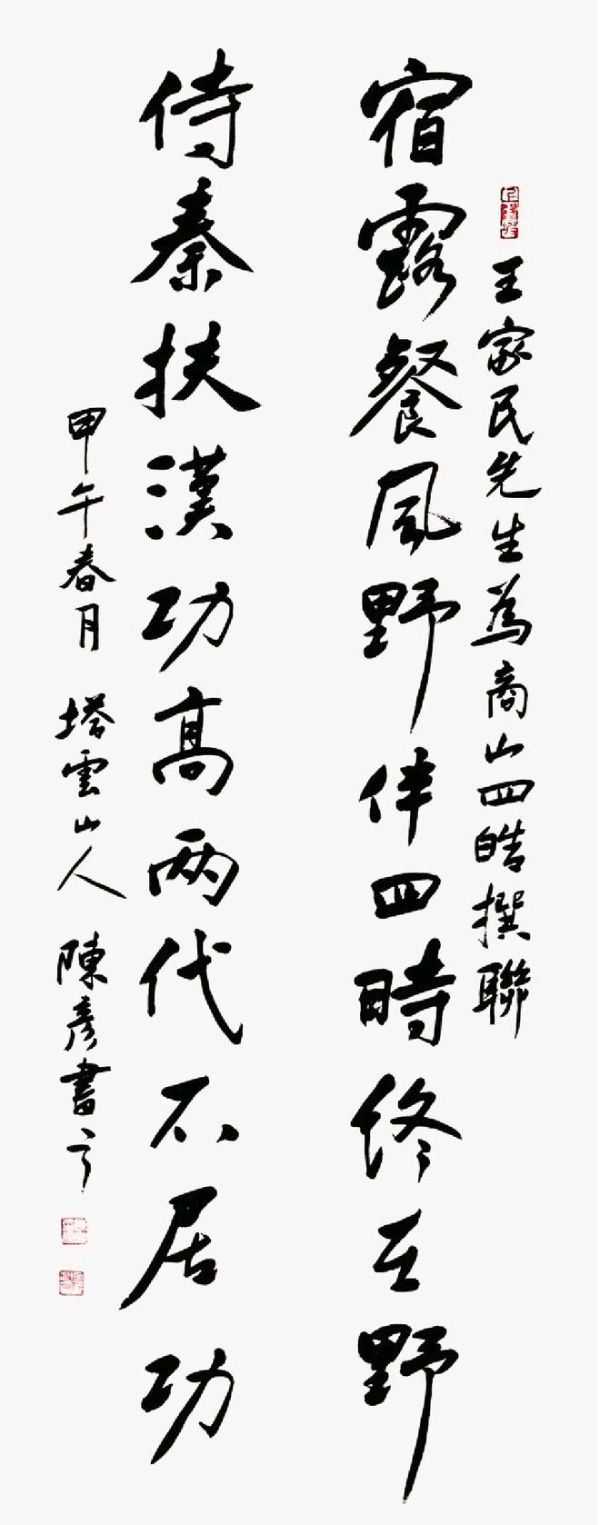 王家民先生為商山四皓撰聯
宿露餐風野伴四時終在野
侍秦扶漢功高兩代不居功
甲午春月 塔雲山人 陳彥書